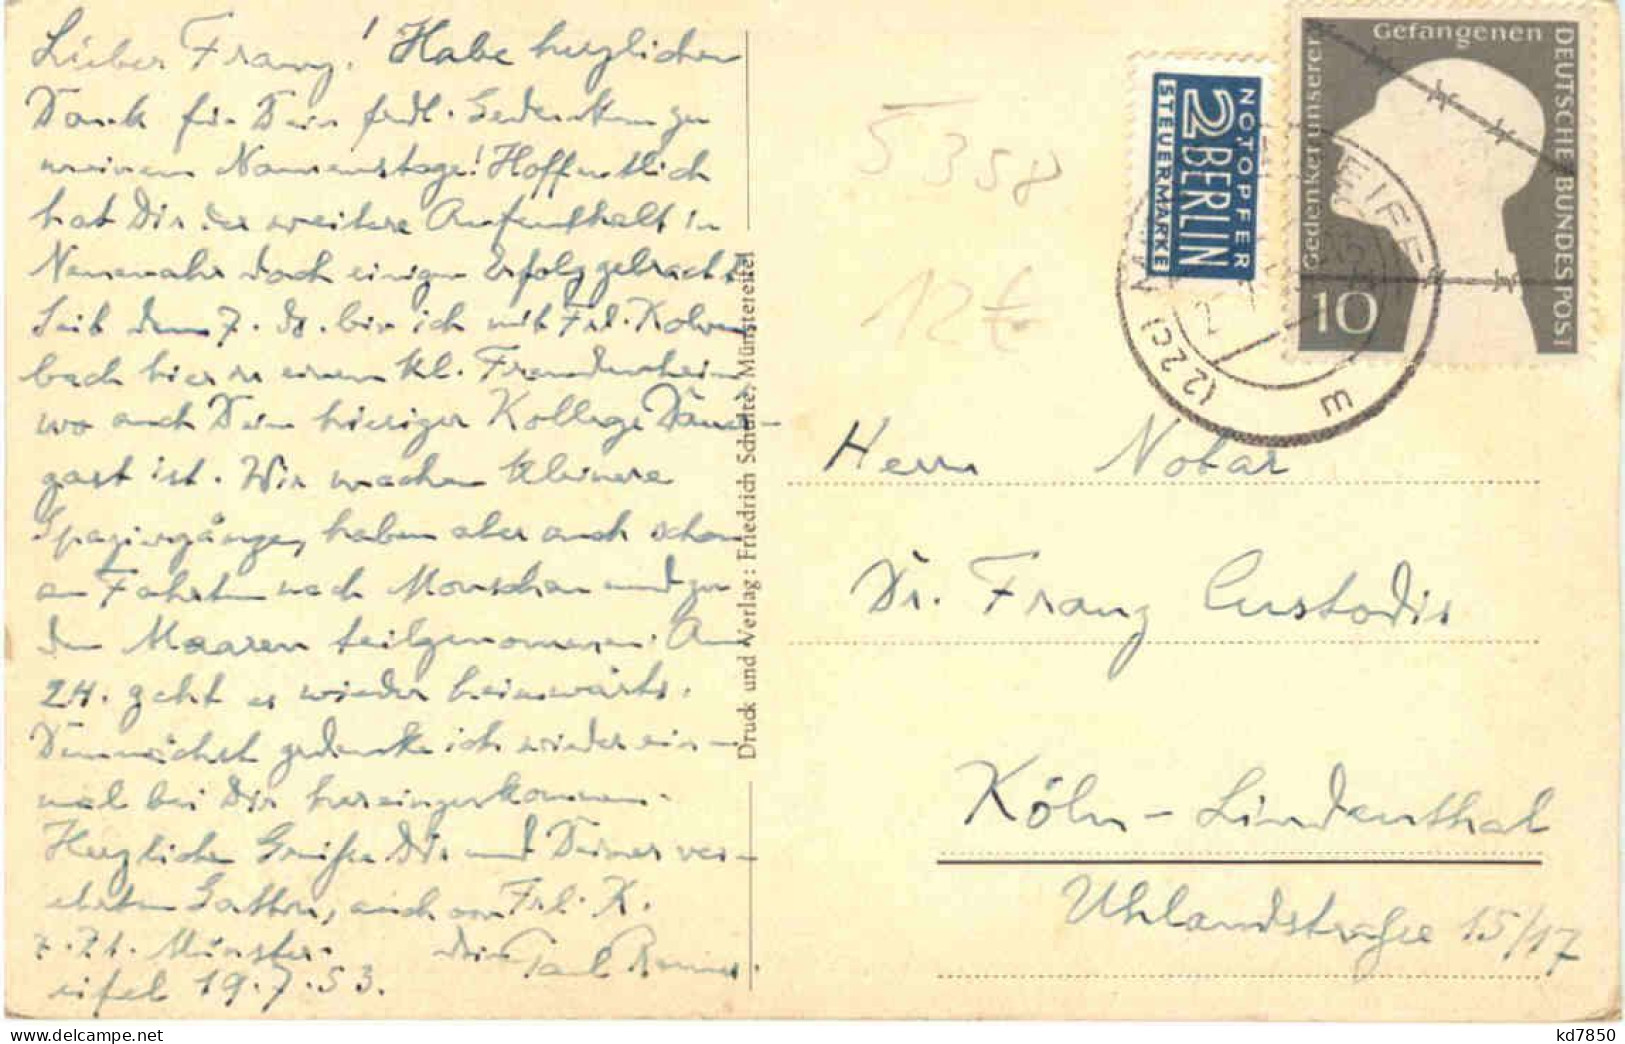 Lieber Franz! Habe herzlichen
Dank für Dein frdl. Gedenken zu
meinem Namenstage! Hoffentlich
hat Dir der weitere Aufenthalt in
Neuenahr doch einigen Erfolg gebracht
Seit dem 7. ds. bin ich mit Frl. Kolven
bach hier in einem kl. Fremdenheim
wo auch Dein hiesiger Kollege Dauer-
gast ist. Wir machen kleinere
Spaziergänge, haben aber auch schon
an Fahrten nach Monschau und zu
den Maaren teilgenommen. Am
24. geht es wieder heimwärts.
Demnächst gedenke ich wieder ein-
mal bei Dir hereinzukommen.
Herzliche Grüße Dir und Deiner ver-
ehrten Gattin, auch von Frl. K.
z. Zt. Münster- dein Paul
eifel 19.7.53.
Druck und Verlag: Friedrich Schulte, Münstereifel
5358
12€
NOTOPFER
2 BERLIN
STEUERMARKE
Gedenket unserer
Gefangenen
DEUTSCHE BUNDESPOST
10
(22c) EIFEL
Herrn Notar
Dr. Franz Custodis
Köln-Lindenthal
Uhlandstraße 15/17
www.delcampe.net
kd7850